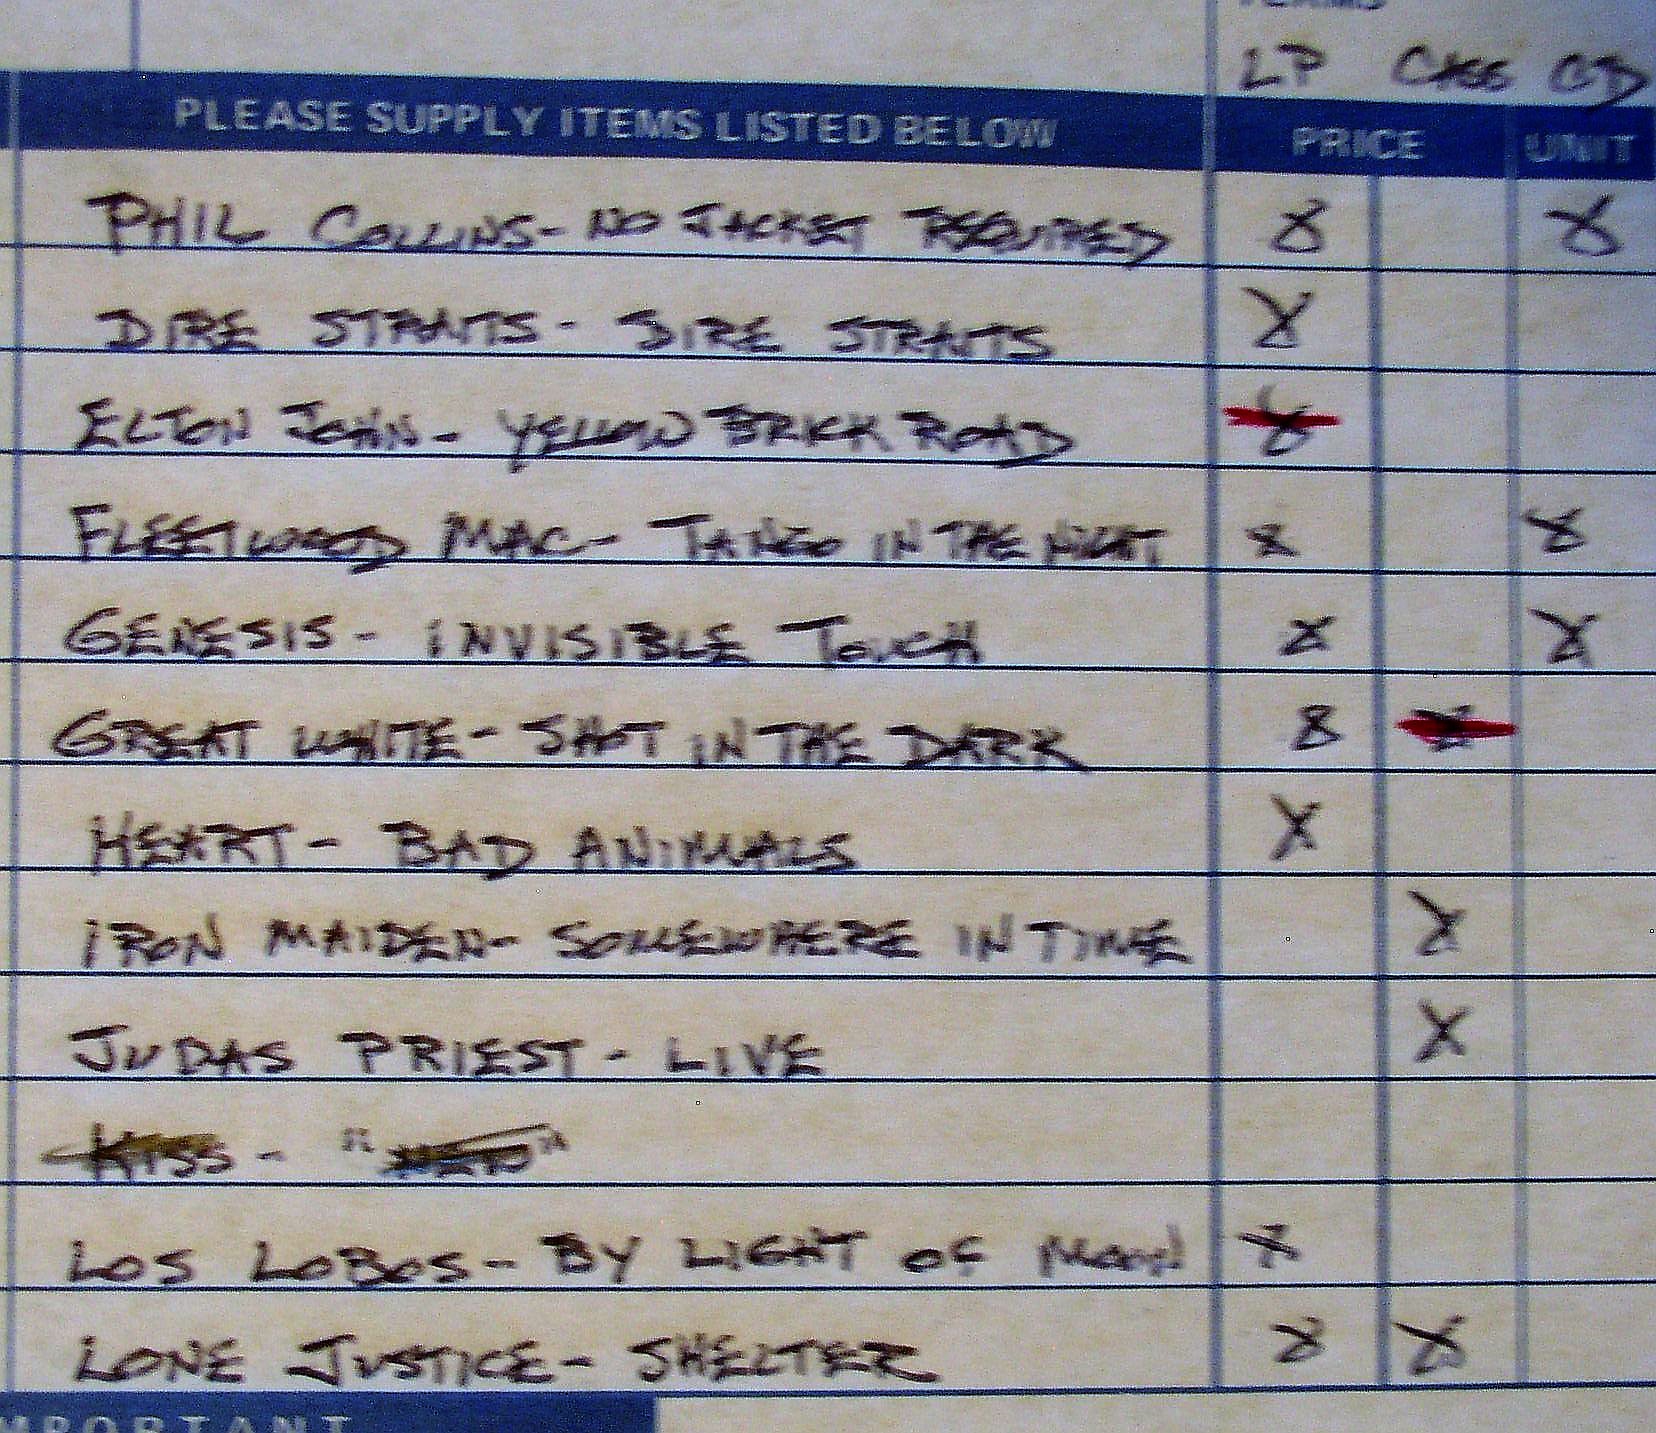 LP CASS CD
PLEASE SUPPLY ITEMS LISTED BELOW PRICE UNIT
PHIL COLLINS - NO JACKET REQUIRED X X
DIRE STRAITS - DIRE STRAITS X
ELTON JOHN - YELLOW BRICK ROAD X
FLEETWOOD MAC - TANGO IN THE NIGHT X X
GENESIS - INVISIBLE TOUCH X X
GREAT WHITE - SHOT IN THE DARK X X
HEART - BAD ANIMALS X
IRON MAIDEN - SOMEWHERE IN TIME X
JUDAS PRIEST - LIVE X
KISS - 
LOS LOBOS - BY LIGHT OF MOON X
LONE JUSTICE - SHELTER X X
IMPORTANT